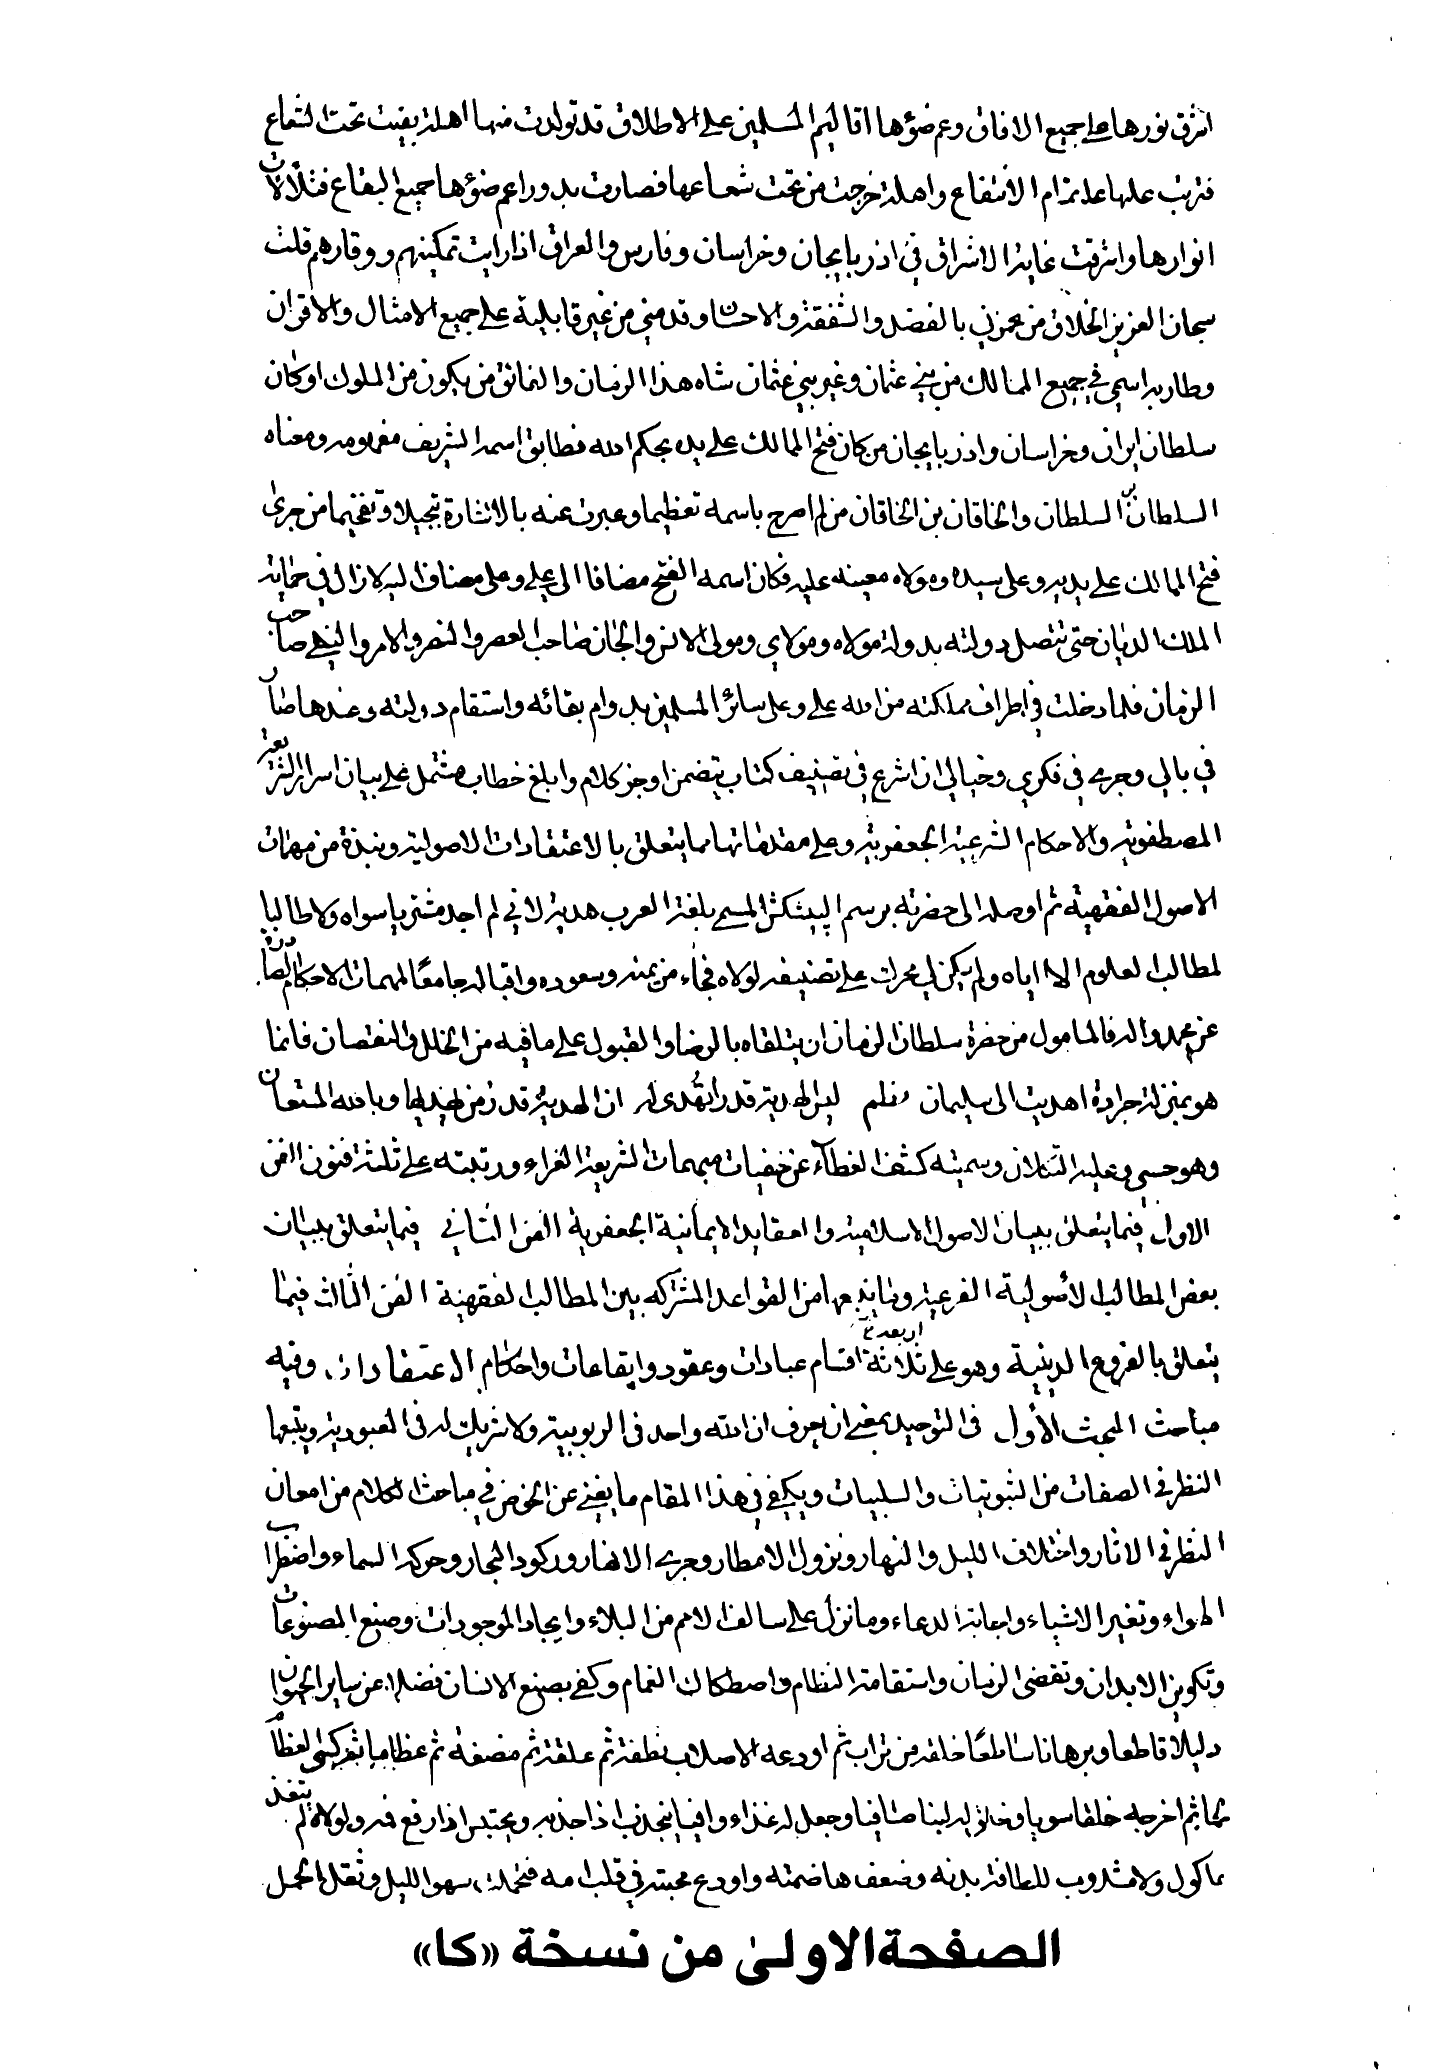 اشرق نورها على جميع الافاق وعم ضوؤها اقاليم المسلمين على الاطلاق قد تولدت منها اهلة بقيت تحت الشعاع
فترتب عليها تمام الانتفاع واهلة خرجت من تحت شعاعها فصارت بدورا عم ضوؤها جميع البقاع فتلألات
انوارها واشرقت غاية الاشراق في اذربايجان وخراسان وفارس والعراق اذا رايت تمكينهم ووقارهم قلت
سبحان العزيز الخلاق من عمني بالفضل والشفقة والاحسان وقدمني من غير قابلية على جميع الامثال والاقران
وطار به اسمي في جميع الممالك من بني عثمان وغير بني عثمان شاه هذا الزمان والفائق من يكون من الملوك او كان
سلطان ايران وخراسان واذربايجان من كان فتح الممالك على يده بحكم الله فطابق اسمه الشريف مفهومه ومعناه
السلطان بن السلطان والخاقان بن الخاقان من لم اصرح باسمه تعظيما وعبرت عنه بالاشارة تبجيلا وتفخيما من جرى
فتح الممالك على يديه وعلي سيده ومولاه معينه عليه فكان اسمه الفتح مضافا الى علي وعلي مضاف اليه لازال في حماية
الملك الديان حتى تتصل دولته بدولة مولاه ومولاي ومولى الانس والجان صاحب العصر والنصر والامر والنهي صاحب
الزمان فلما دخلت في اطراف مملكته من الله علي وعلى سائر المسلمين بدوام بقائه واستقام دولته وعندها صار
في بالي وجرى في فكري وخيالي ان اشرع في تصنيف كتاب يتضمن اوجز كلام وابلغ خطاب مشتمل على بيان اسرار الشريعة
المصطفوية والاحكام الشرعية الجعفرية وعلى مقدماتها مما يتعلق بالاعتقادات الاصولية ونبذة من مهمات
الاصول الفقهية ثم اوصله الى حضرته برسم البيشكش المسمى بلغة العرب هدية لاني لم اجد مشتريا سواه ولا طالبا
لمطالب العلوم الا اياه ولم يكن لي محرك على تصنيفه لولاه فجاء من يمنه وسعوده واقباله جامعا لمهمات الاحكام الصادرة
عن محمد واله فالمامول من حضرة سلطان الزمان ان يتلقاه بالرضا والقبول على ما فيه من الخلل والنقصان فانما
هو بمنزلة جرادة اهديت الى سليمان نظم ليس الهدية قدرا تُهدى له ان الهدية قدر من يهديها وبالله المستعان
وهو حسبي وعليه التكلان وسميته كشف الغطاء عن خفيات مبهمات الشريعة الغراء ورتبته على ثلثة فنون الفن
الاول فيما يتعلق ببيان الاصول الاسلامية والعقايد الايمانية الجعفرية الفن الثاني فيما يتعلق ببيان
بعض المطالب الأصولية الفرعية وما يتبعها من القواعد المشتركه بين المطالب الفقهية الفن الثالث فيما
يتعلق بالفروع الدينية وهو على ثلاثة اربعة اقسام عبادات وعقود وايقاعات واحكام الاعتقادات وفيه
مباحث المبحث الأول في التوحيد بمعنى ان يعرف ان الله واحد في الربوبية ولا شريك له في العبودية ويتبعها
النظر في الصفات من الثبوتيات والسلبيات ويكفي في هذا المقام ما يغني عن الخوض في مباحث الكلام من امعان
النظر في الاثار واختلاف الليل والنهار ونزول الامطار وجرى الانهار وركود البحار وحركة السماء واضطراب
الهواء وتغير الاشياء واجابة الدعاء وما نزل على سالف الامم من البلاء وايجاد الموجودات وصنع المصنوعات
وتكوين الابدان وتقضى الزمان واستقامة النظام واصطكاك الغمام وكفى بصنع الانسان فضلا عن ساير الحيوان
دليلا قاطعا وبرهانا ساطعا خلقه من تراب ثم اودعه الاصلاب نطفة ثم علقة ثم مضغة ثم عظاما ثم كسى العظام
لحما ثم اخرجه خلقا سويا وخلق له لبنا صافيا وجعل له غذاء وافيا ينجذب اذا جذبه ويحتبس اذا رفع فمه ولولاه لم يتغذ
بماكول ولا مشروب للطافة بدنه وضعف هاضمته واودع محبته في قلب امه فتحملت سهو الليل وثقل الحمل
الصفحة الاولىٰ من نسخة «كا»